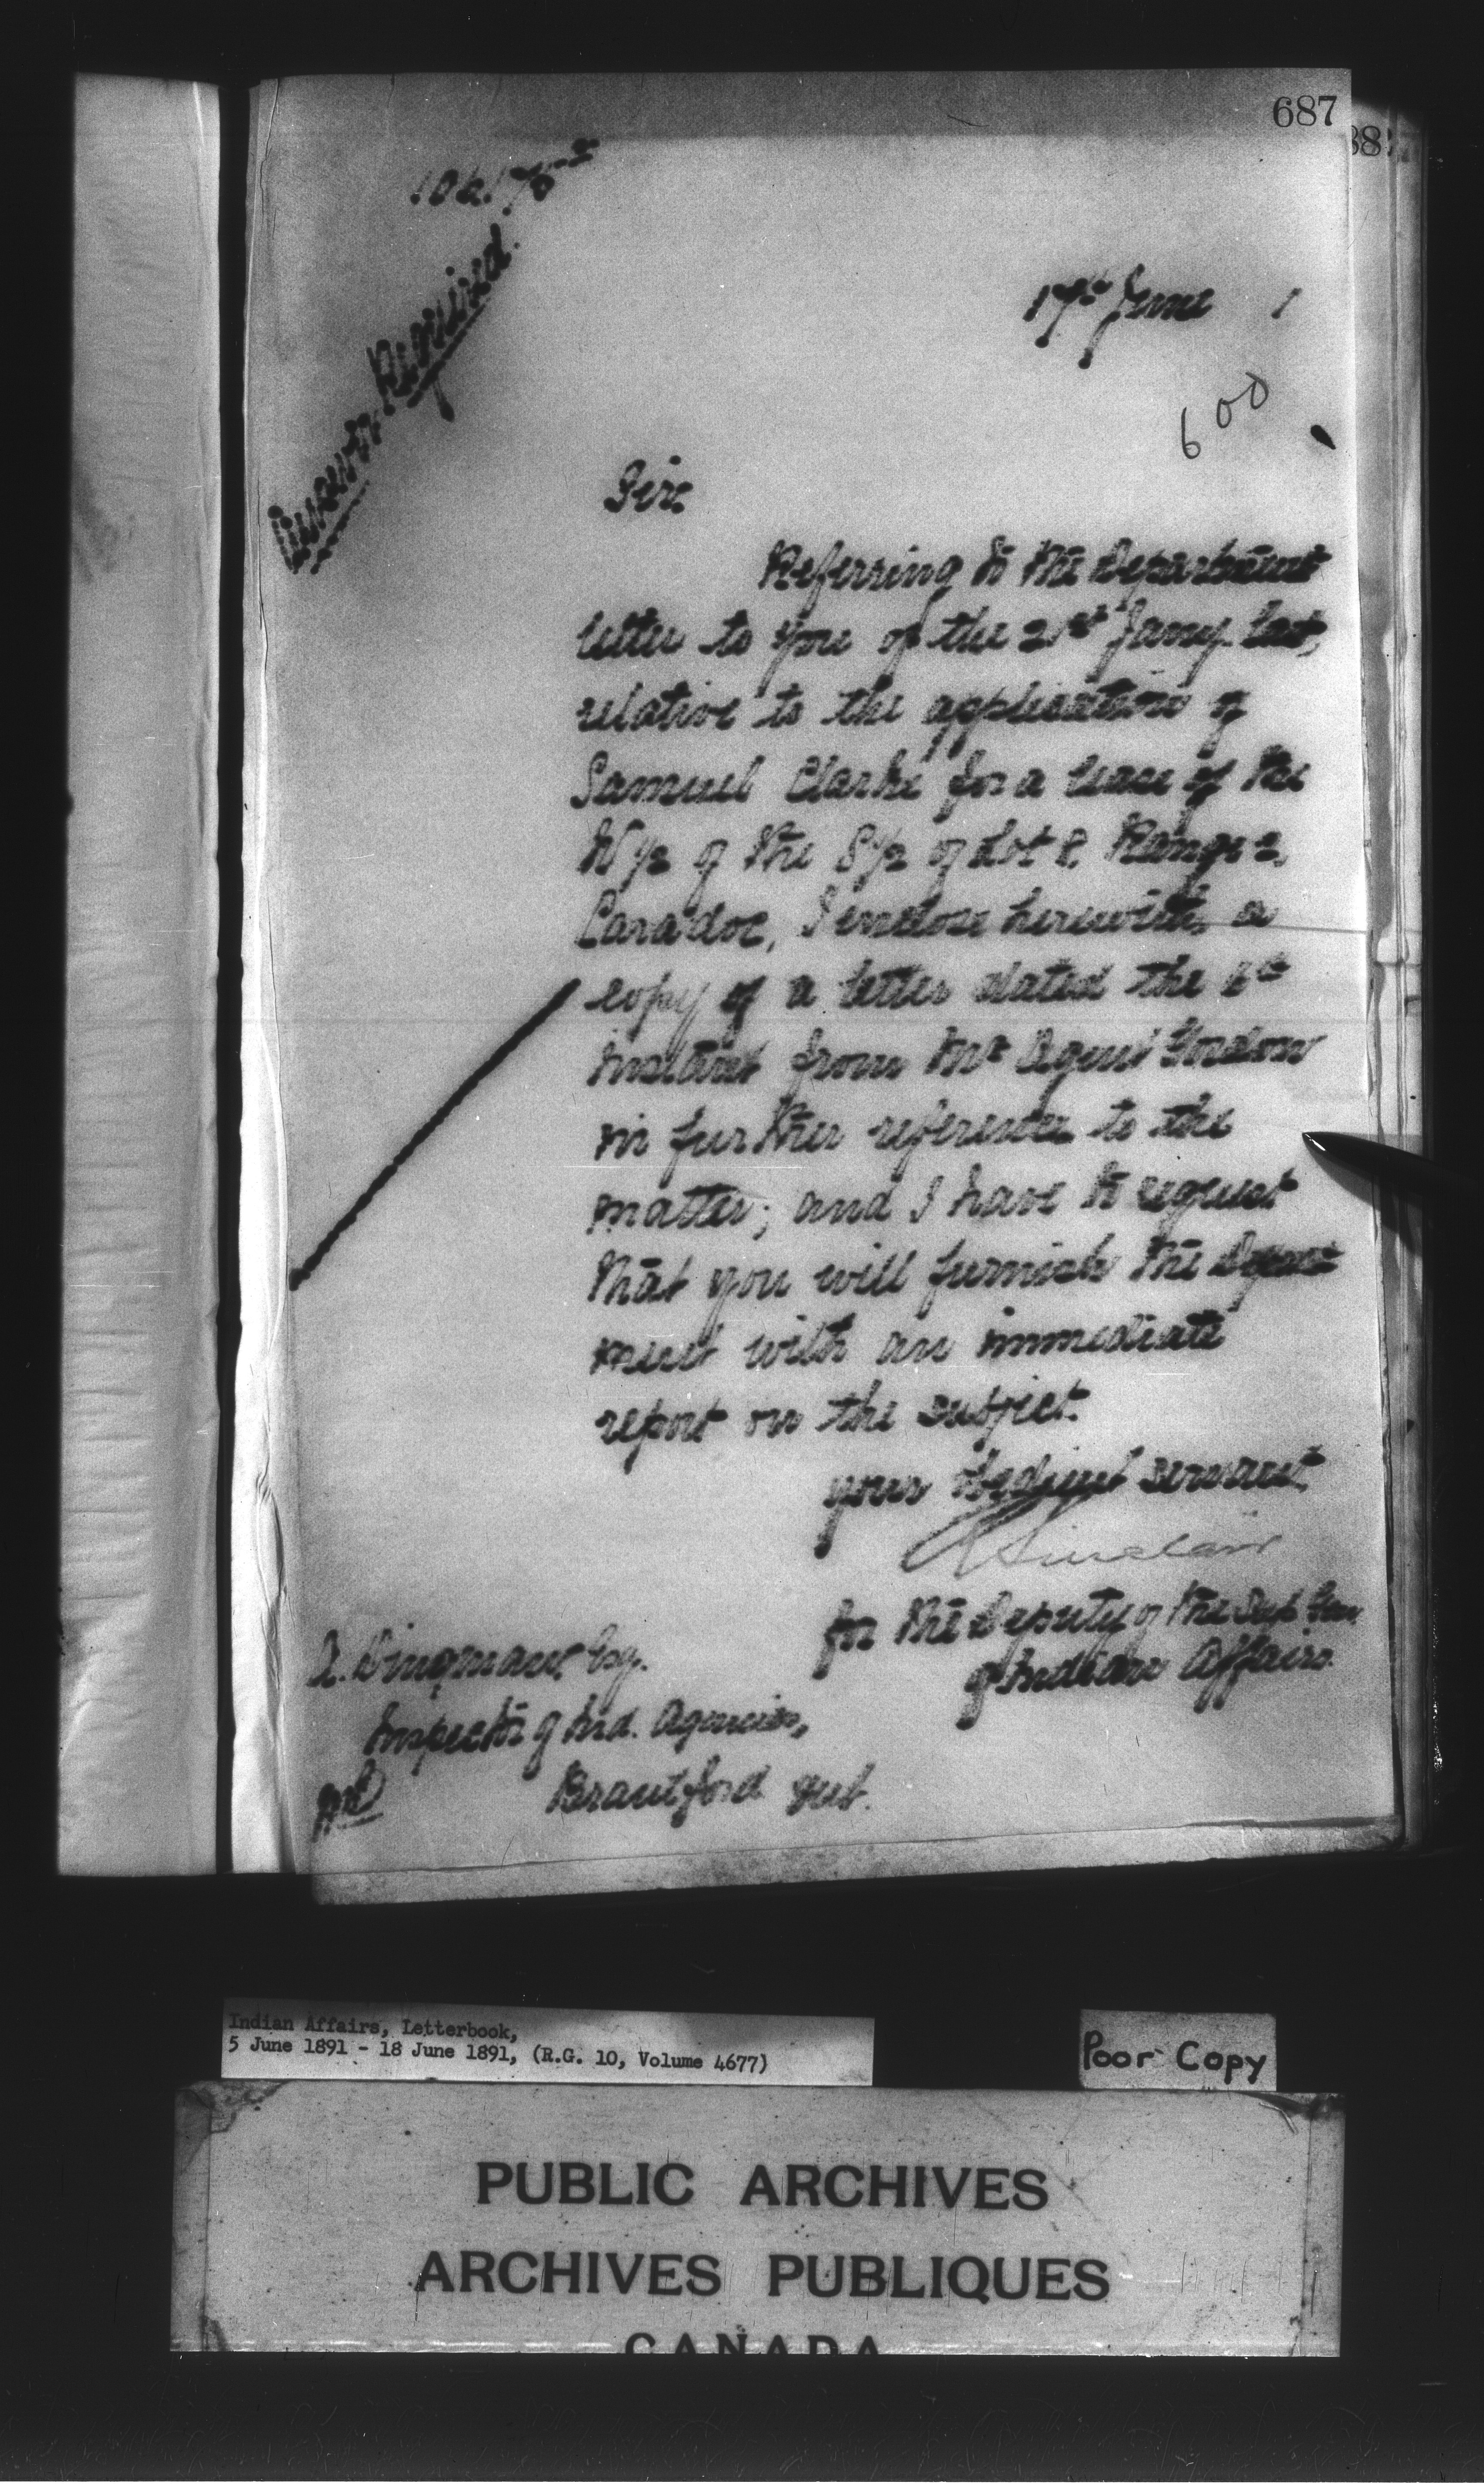 687
Answer Required.
17th June 1
600
Sir,
Referring to the Department
letter to you of the 21st Jany. last,
relative to the application of
Samuel Clarke for a lease of the
W ½ of the S ½ of Lot Range 2,
Caradoc, I enclose herewith, a
copy of a letter dated the
instant from Mr Agent Gordon
in further reference to the
matter; and I have to request
that you will furnish the Depart
ment with an immediate
report on the subject.
your obedient servant,
Sinclair
for the Deputy of the Sup. Gen.
of Indian Affairs.
A. Dingman, Esq.
Inspector of Ind. Agencies,
Brantford Ont.
Indian Affairs, Letterbook,
5 June 1891 - 18 June 1891, (R.G. 10, Volume 4677)
Poor Copy
PUBLIC ARCHIVES
ARCHIVES PUBLIQUES
CANADA